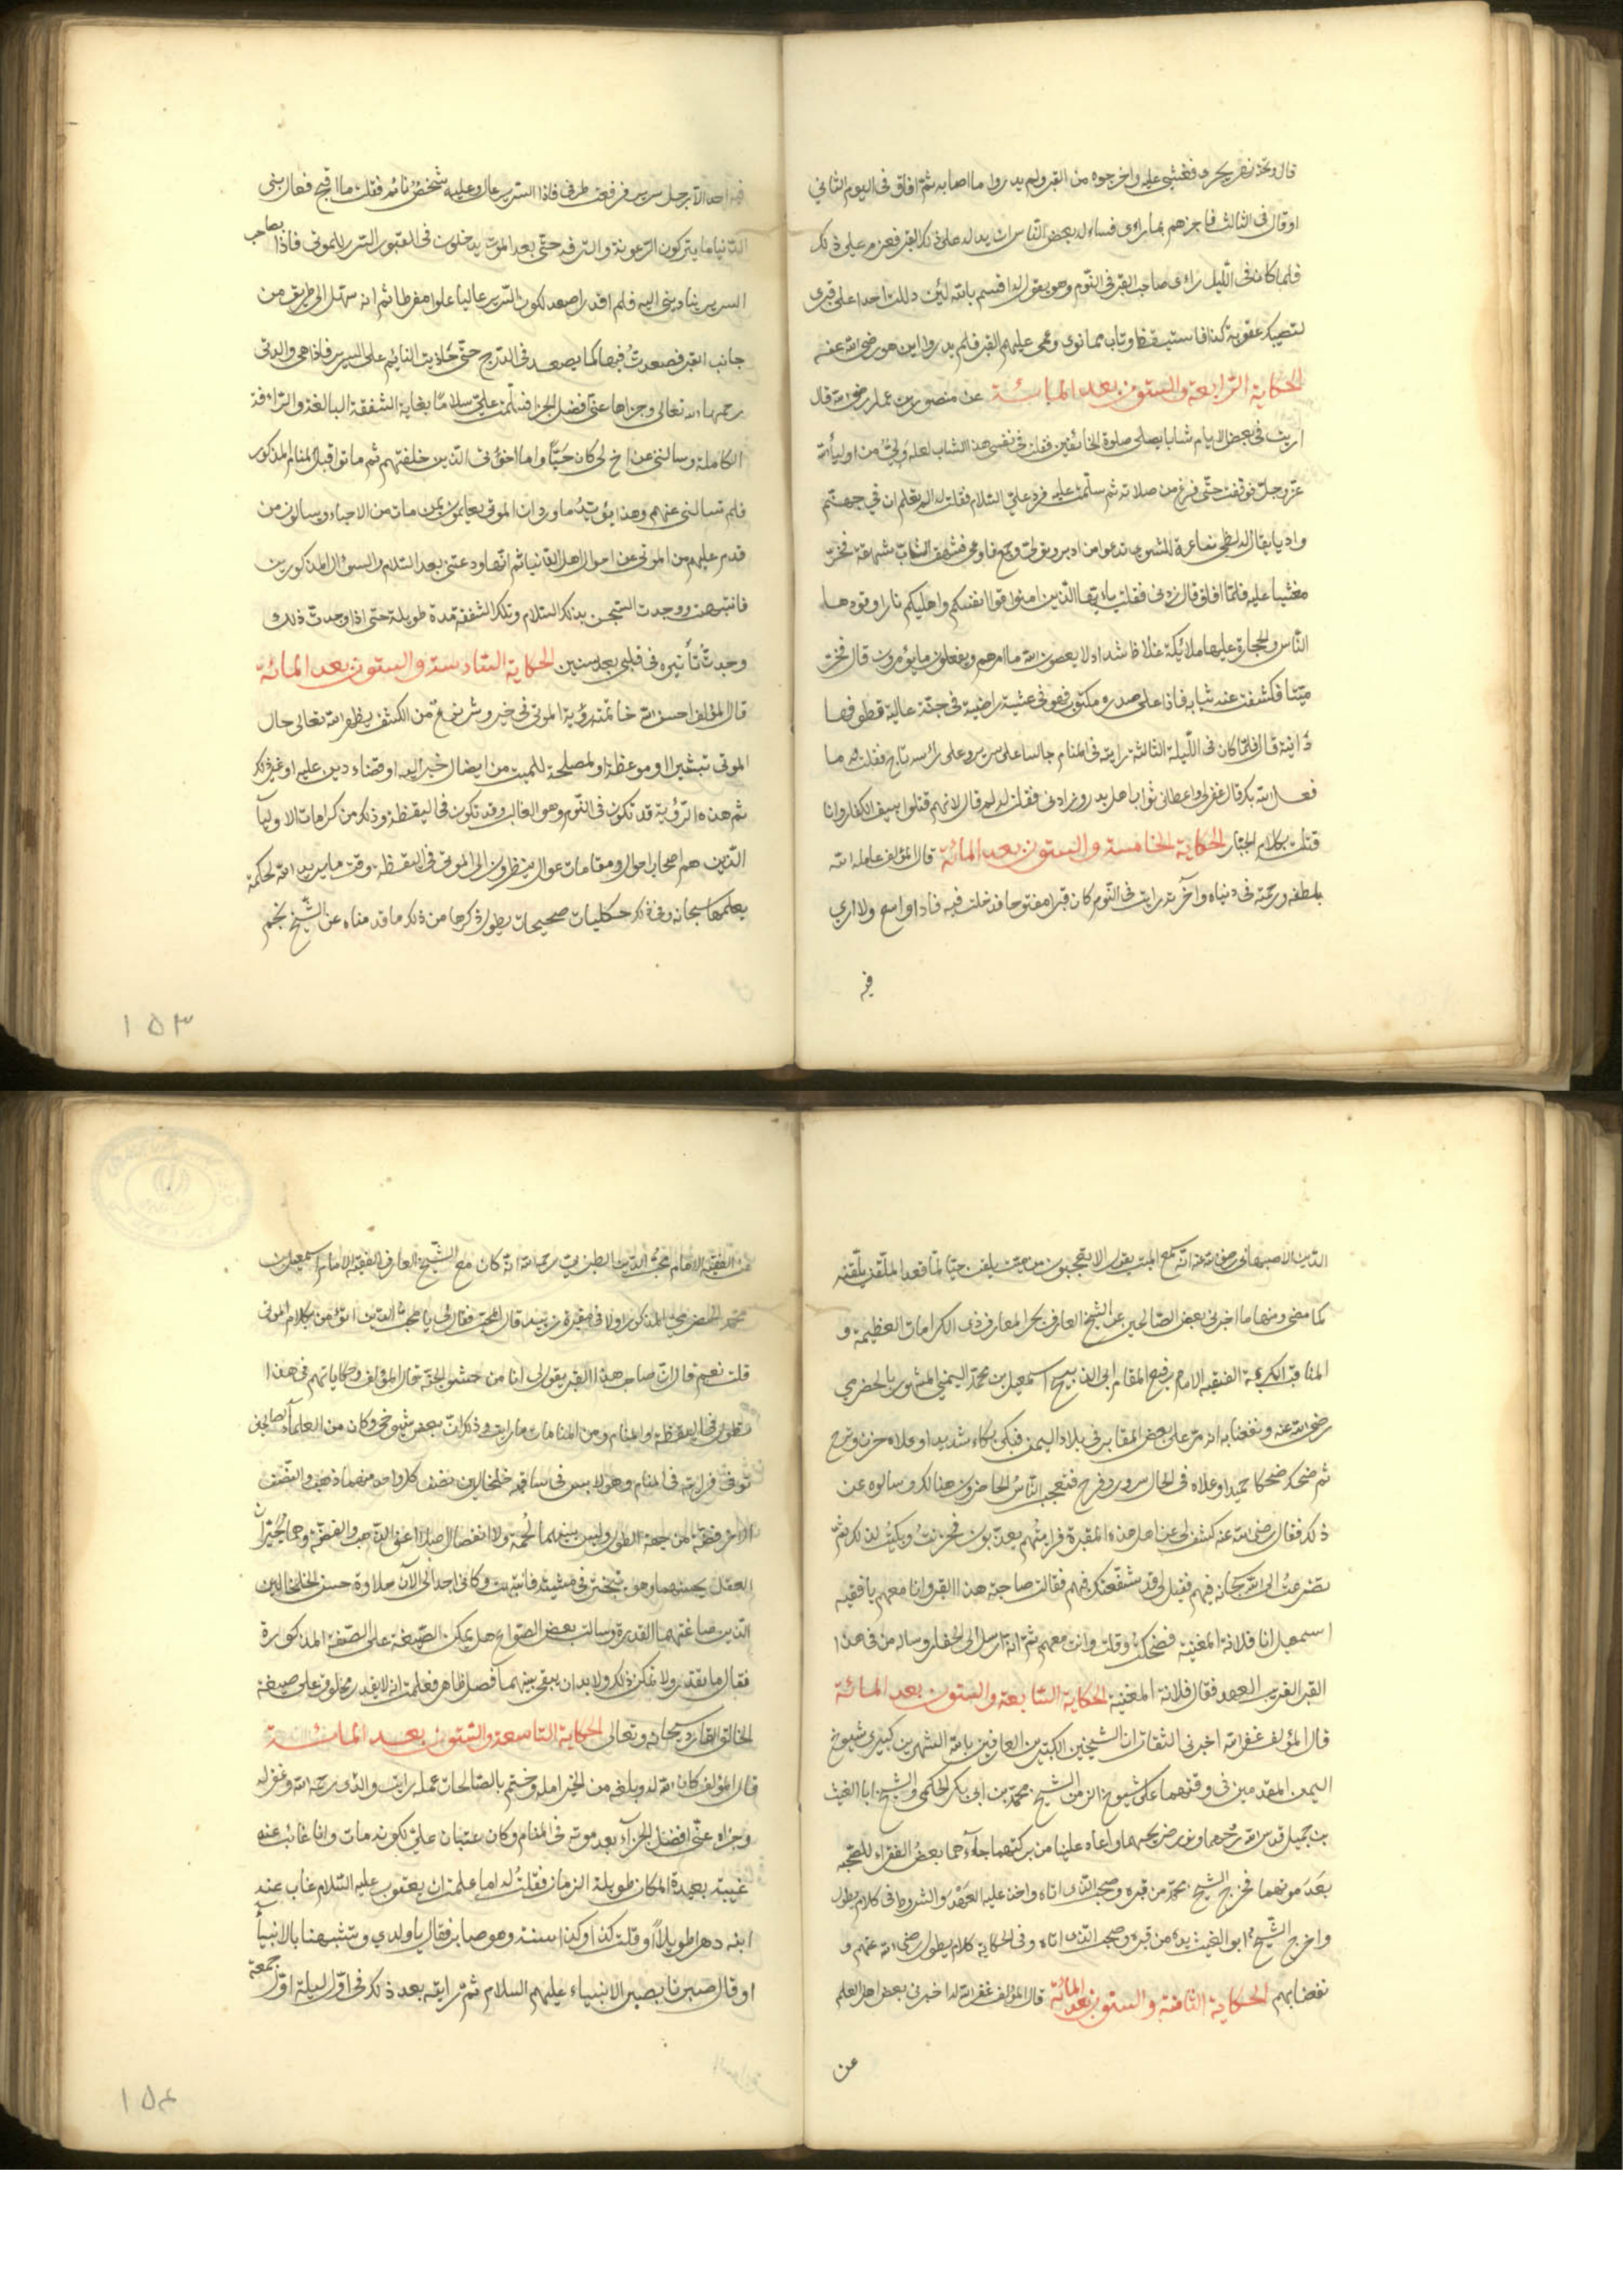 قال وتحته نهر يجرى فغشى عليه واخرجوه من القبر ولم يدروا ما اصابه ثم افاق فى اليوم الثانى
او قال فى الثالث فاخبرهم بما راى فساله بعض الناس ان يدله على ذلك القبر فعزم على ذلك
فلما كان فى الليل راى صاحب القبر فى النوم وهو يقول له اقسم بالله لئن دللت احدا على قبرى
لتصيبك عقوبة كذا فاستيقظ وتاب مما نوى وعمى عليهم القبر فلم يدروا اين هو رضى الله عنه
الحكاية الرابعة والستون بعد المائة عن منصور بن عمار رضى الله قال
رايت فى بعض الايام شابا يصلى صلوة الخائفين فقلت فى نفسى هذا الشاب لعله ولى من اولياء الله
عز وجل فوقفت حتى فرغ من صلاته ثم سلمت عليه فرد على السلام فقلت له الم تعلم ان فى جهنم
واديا يقال له لظى نزاعة للشوى تدعوا من ادبر وتولى وجمع فاوعى فشهق الشاب شهقة فخر
مغشيا عليه فلما افاق قال زدنى فقلت يا ايها الذين امنوا قوا انفسكم واهليكم نارا وقودها
الناس والحجارة عليها ملائكة غلاظ شداد لا يعصون الله ما امرهم ويفعلون ما يؤمرون قال فخر
ميتا فكشفت عنه ثيابه فاذا على صدره مكتوب فهو فى عيشة راضية فى جنة عالية قطوفها
دانية قال فلما كان فى الليلة الثالثة رايته فى المنام جالسا على سرير وعلى رأسه تاج فقلت له ما
فعل الله بك قال غفر لى واعطانى ثواب اهل بدر وزادنى فقلت له لم قال لانهم قتلوا بسيف الكفار وانا
قتلت بكلام الجبار الحكاية الخامسة والستون بعد المائة قال المؤلف عامله الله
بلطفه ورحمته فى دنياه وآخرته رايت فى النوم كان قبرا مفتوحا فدخلت فيه فاذا واسع ولا ارى
فيه
فيه احدا الا رجل سرير فرفعت طرفى فاذا السرير عال وعليه شخص نائم فقلت ما اقبح فعال بنى
الدنيا ما يتركون الرعونة والترفه حتى بعد الموت يدخلون فى القبور السرر للموتى فاذا بصاحب
السرير يناديني اليه فلم اقدر اصعد لكون السرير عاليا علوا مفرطا ثم انه سهل لى طريق من
جانب القبر فصعدت فيها كما يصعد فى الدرج حتى حاذيت النائم على السرير فاذا هى والدتى
رحمها الله تعالى وجزاها عنى افضل الجزاء فسلمت على سلاما بغاية الشفقة البالغة والرافة
الكاملة وسالتنى عن اخ لى كان حيا واما اخوتى الذين خلفتهم ثم ماتوا قبل المنام المذكور
فلم تسالنى عنهم وهذا يؤيد ما ورد ان الموتى يعلمون بمن مات من الاحياء ويسالون من
قدم عليهم من الموتى عن احوال اهل الدنيا ثم انها ودعتنى بعد السلام والسؤال المذكورين
فانتبهت ووجدت الشجن بذلك السلام وتلك الشفقة مدة طويلة حتى اذا وجدت ذلك
وجدت تأثيره فى قلبى بعد سنين الحكاية السادسة والستون بعد المائة
قال المؤلف احسن الله خاتمته رؤية الموتى فى خير وشر نوع من الكشف يظهره الله تعالى حال
الموتى تبشيرا او موعظة او لمصلحة للميت من ايصال خير اليه او قضاء دين عليه او غير ذلك
ثم هذه الرؤية قد تكون فى النوم وهو الغالب وقد تكون فى اليقظة وذلك من كرامات الاولياء
الذين هم اصحاب احوال ومقامات عوال ينظرون الى الموتى فى اليقظة وقت ما يريد الله لحكمة
يعلمها سبحانه وفى ذلك حكايات صحيحات يطول ذكرها من ذلك ما قدمناه عن الشيخ نجم
١٥٣
الدين الاصبهانى رضى الله عنه انه سمع الميت يقول الا تعجبون من ميت يلقن حيا لما قعد الملقن يلقنه
كما مضى ومنها ما اخبرنى بعض الصالحين عن الشيخ العارف بحر المعارف ذى الكرامات العظيمة و
المناقب الكريمة الفقيه الامام رفيع المقام ابى الذبيح اسمعيل بن محمد اليمنى المشهور بالحضرمى
رضى الله عنه ونفعنا به انه مر على بعض المقابر فى بلاد اليمن فبكى بكاء شديدا وعلاه حزن وترح
ثم ضحك ضحكا حميدا وعلاه فى الحال سرور وفرح فتعجب الناس الحاضرون هنالك وسالوه عن
ذلك فقال رضى الله عنه كشف لى عن اهل هذه المقبرة فرايتهم يعذبون فحزنت وبكيت لذلك ثم
تضرعت الى الله سبحانه فيهم فقيل لى قد شفعناك فيهم فقالت صاحبة هذا القبر وانا معهم يا فقيه
اسمعيل انا فلانة المغنية فضحكت وقلت وانت معهم ثم انه ارسل الى الحفار وساله من فى هذا
القبر القريب العهد فقال فلانة المغنية الحكاية السابعة والستون بعد المائة
قال المؤلف غفر الله اخبرنى الثقات ان الشيخين الكبيرين العارفين بالله الشهيرين كبيرى شيوخ
اليمن المقدمين فى وقتهما على شيوخ الزمن الشيخ محمد بن ابى بكر الحكمى والشيخ ابا الغيث
بن جميل قدس الله روحهما ونور ضريحهما واعاد علينا من بركتهما جاءهما بعض الفقراء للصحبة
بعد موتهما فخرج الشيخ محمد من قبره وصحب الذى اتاه واخذ عليه العهد والشروط فى كلام يطول
واخرج الشيخ ابو الغيث يده من قبره وصحب الذى اتاه وفى الحكاية كلام يطول رضى الله عنهم و
نفعنا بهم الحكاية الثامنة والستون بعد المائة قال المؤلف غفر الله له اخبرنى بعض اهل العلم
عن
عن الفقيه الامام محب الدين الطبرى رحمه الله انه كان مع الشيخ العارف الفقيه الامام اسمعيل بن
محمد الحضرمى المذكور اولا فى مقبرة زبيد قال المحب فقال لى يا محب الدين اتؤمن بكلام الموتى
قلت نعم قال ان صاحب هذا القبر يقول لى انا من حشو الجنة قال المؤلف وحكاياتهم فى هذا
تطول فى اليقظة والمنام ومن المنامات ما رايت وذكر ان بعض شيوخى وكان من العلماء الصالحين
توفى فرايته فى المنام وهو لابس فى ساقيه خلخالين نصف كل واحد منهما ذهب والنصف
الاخر فضة من جهة الطول وليس بينهما لحمة ولا انفصال اصلا اعنى الذهب والفضة وهما يحيران
العقل بحسنهما وهو يتبختر فى مشيته فانتبهت وكانى اجد الى الآن حلاوة حسن الخلخالين
الذين صاغتهما القدرة وسالت بعض الصواغ هل يمكن الصيغة على الصفة المذكورة
فقال ما نقدر ولا يمكن ذلك ولا بد ان يبقى بينهما فصل ظاهر فعلمت انه لا يقدر مخلوق على صيغة
الخالق القادر سبحانه وتعالى الحكاية التاسعة والستون بعد المائة
قال المؤلف كان الله له وبلغه من الخير امله وختم بالصالحات عمله رايت والدى رحمه الله وغفر له
وجزاه عنى افضل الجزاء بعد موته فى المنام وكان عتبان على لكونه مات وانا غائب عنه
غيبة بعيدة المكان طويلة الزمان فقلت له اما علمت ان يعقوب عليه السلام غاب عنه
ابنه دهرا طويلا او قلت كذا وكذا سنة وهو صابر فقال يا ولدي وتتشبهنا بالانبياء
او قال صبرنا بصبر الانبياء عليهم السلام ثم رايته بعد ذلك فى اول ليلة اول جمعة
١٥٤